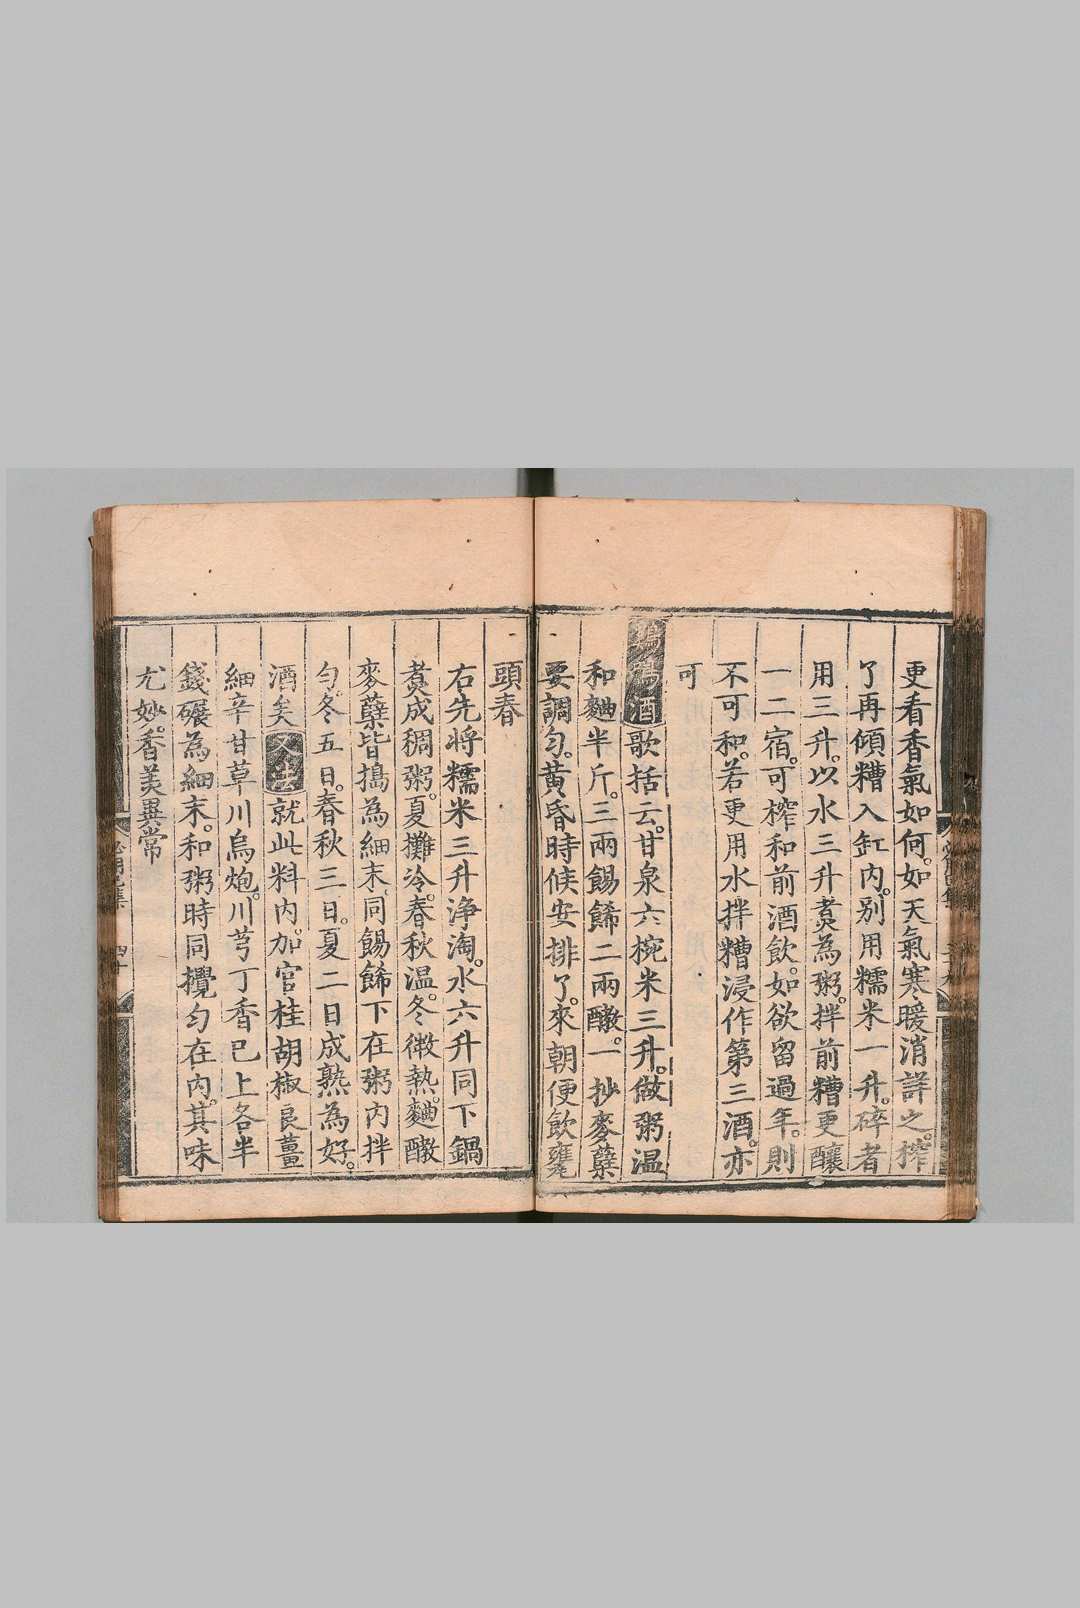 更看香氣如何。如天氣寒暖消詳之。榨
了再傾糟入缸內。別用糯米一升。碎者
用三升。以水三升煮為粥。拌前糟更釀
一二宿。可榨和前酒飲。如欲留過年。則
不可和。若更用水拌糟浸作第三酒。亦
可
酒歌括云。甘泉六椀米三升。做粥温
和麯半斤。三兩餳餙二兩酵。一抄麥蘖
要調勻。黄昏時候安排了。來朝便飲甕
頭春
右先將糯米三升淨淘。水六升同下鍋
煮成稠粥。夏攤冷。春秋温。冬微熱。麯酵
麥蘖皆搗為細末。同餳餙下在粥內拌
勻。冬五日。春秋三日。夏二日成熟為好。
酒矣 又法 就此料內。加官桂胡椒良薑
細辛甘草川烏炮。川芎丁香已上各半
錢碾為細末。和粥時同攪勻在內。其味
尤妙。香美異常